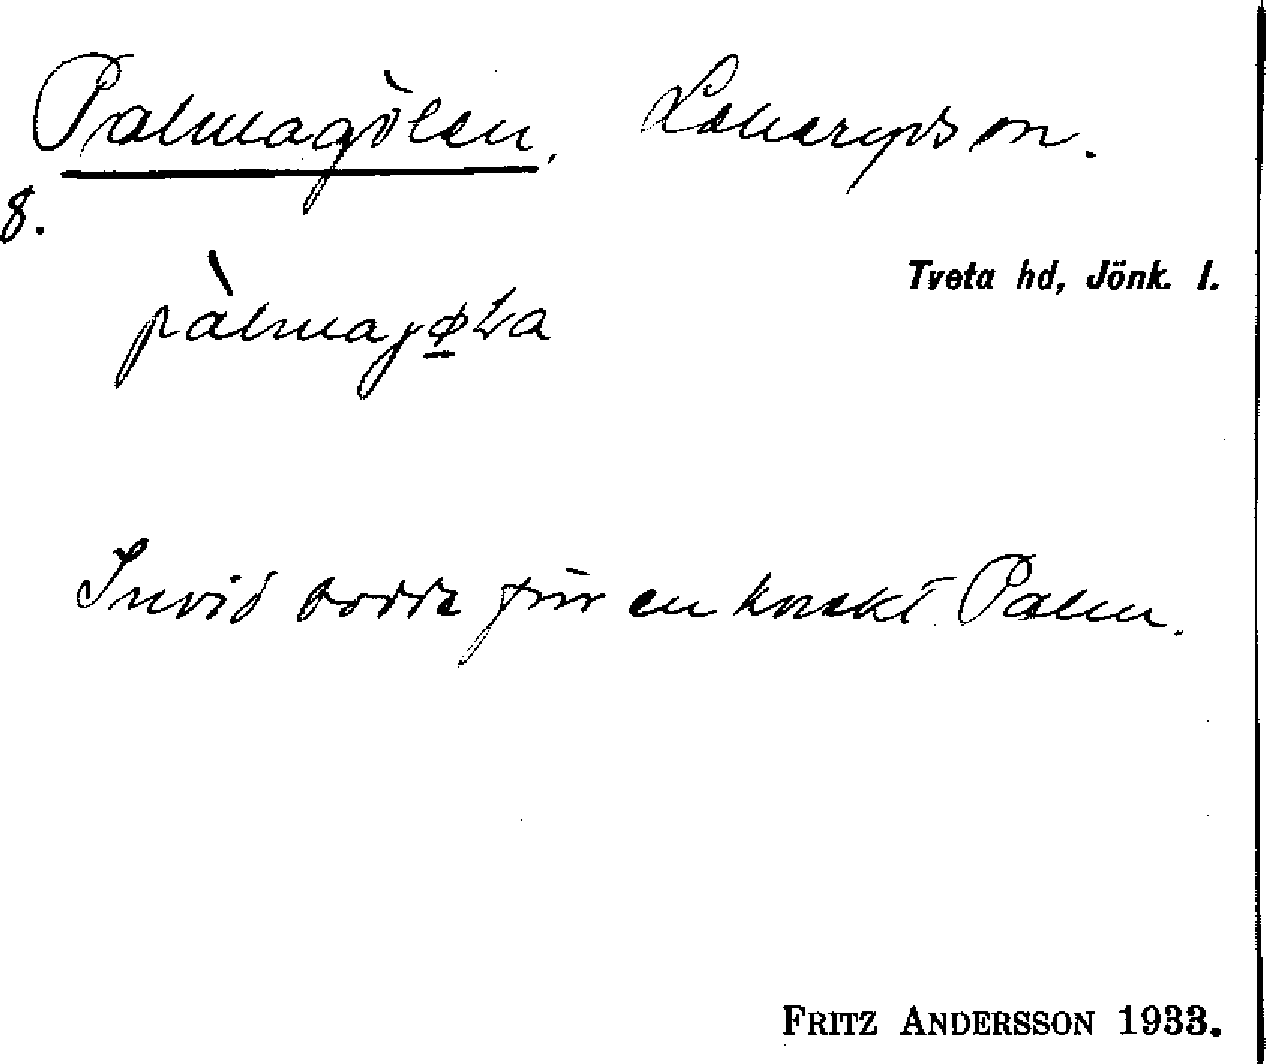 Palmagölen, Lekeryds sn.
8.
Tveta hd, Jönk. l.
pàlmajø̱La
Invid bodde förr en knekt Palm.
FRITZ ANDERSSON 1933.